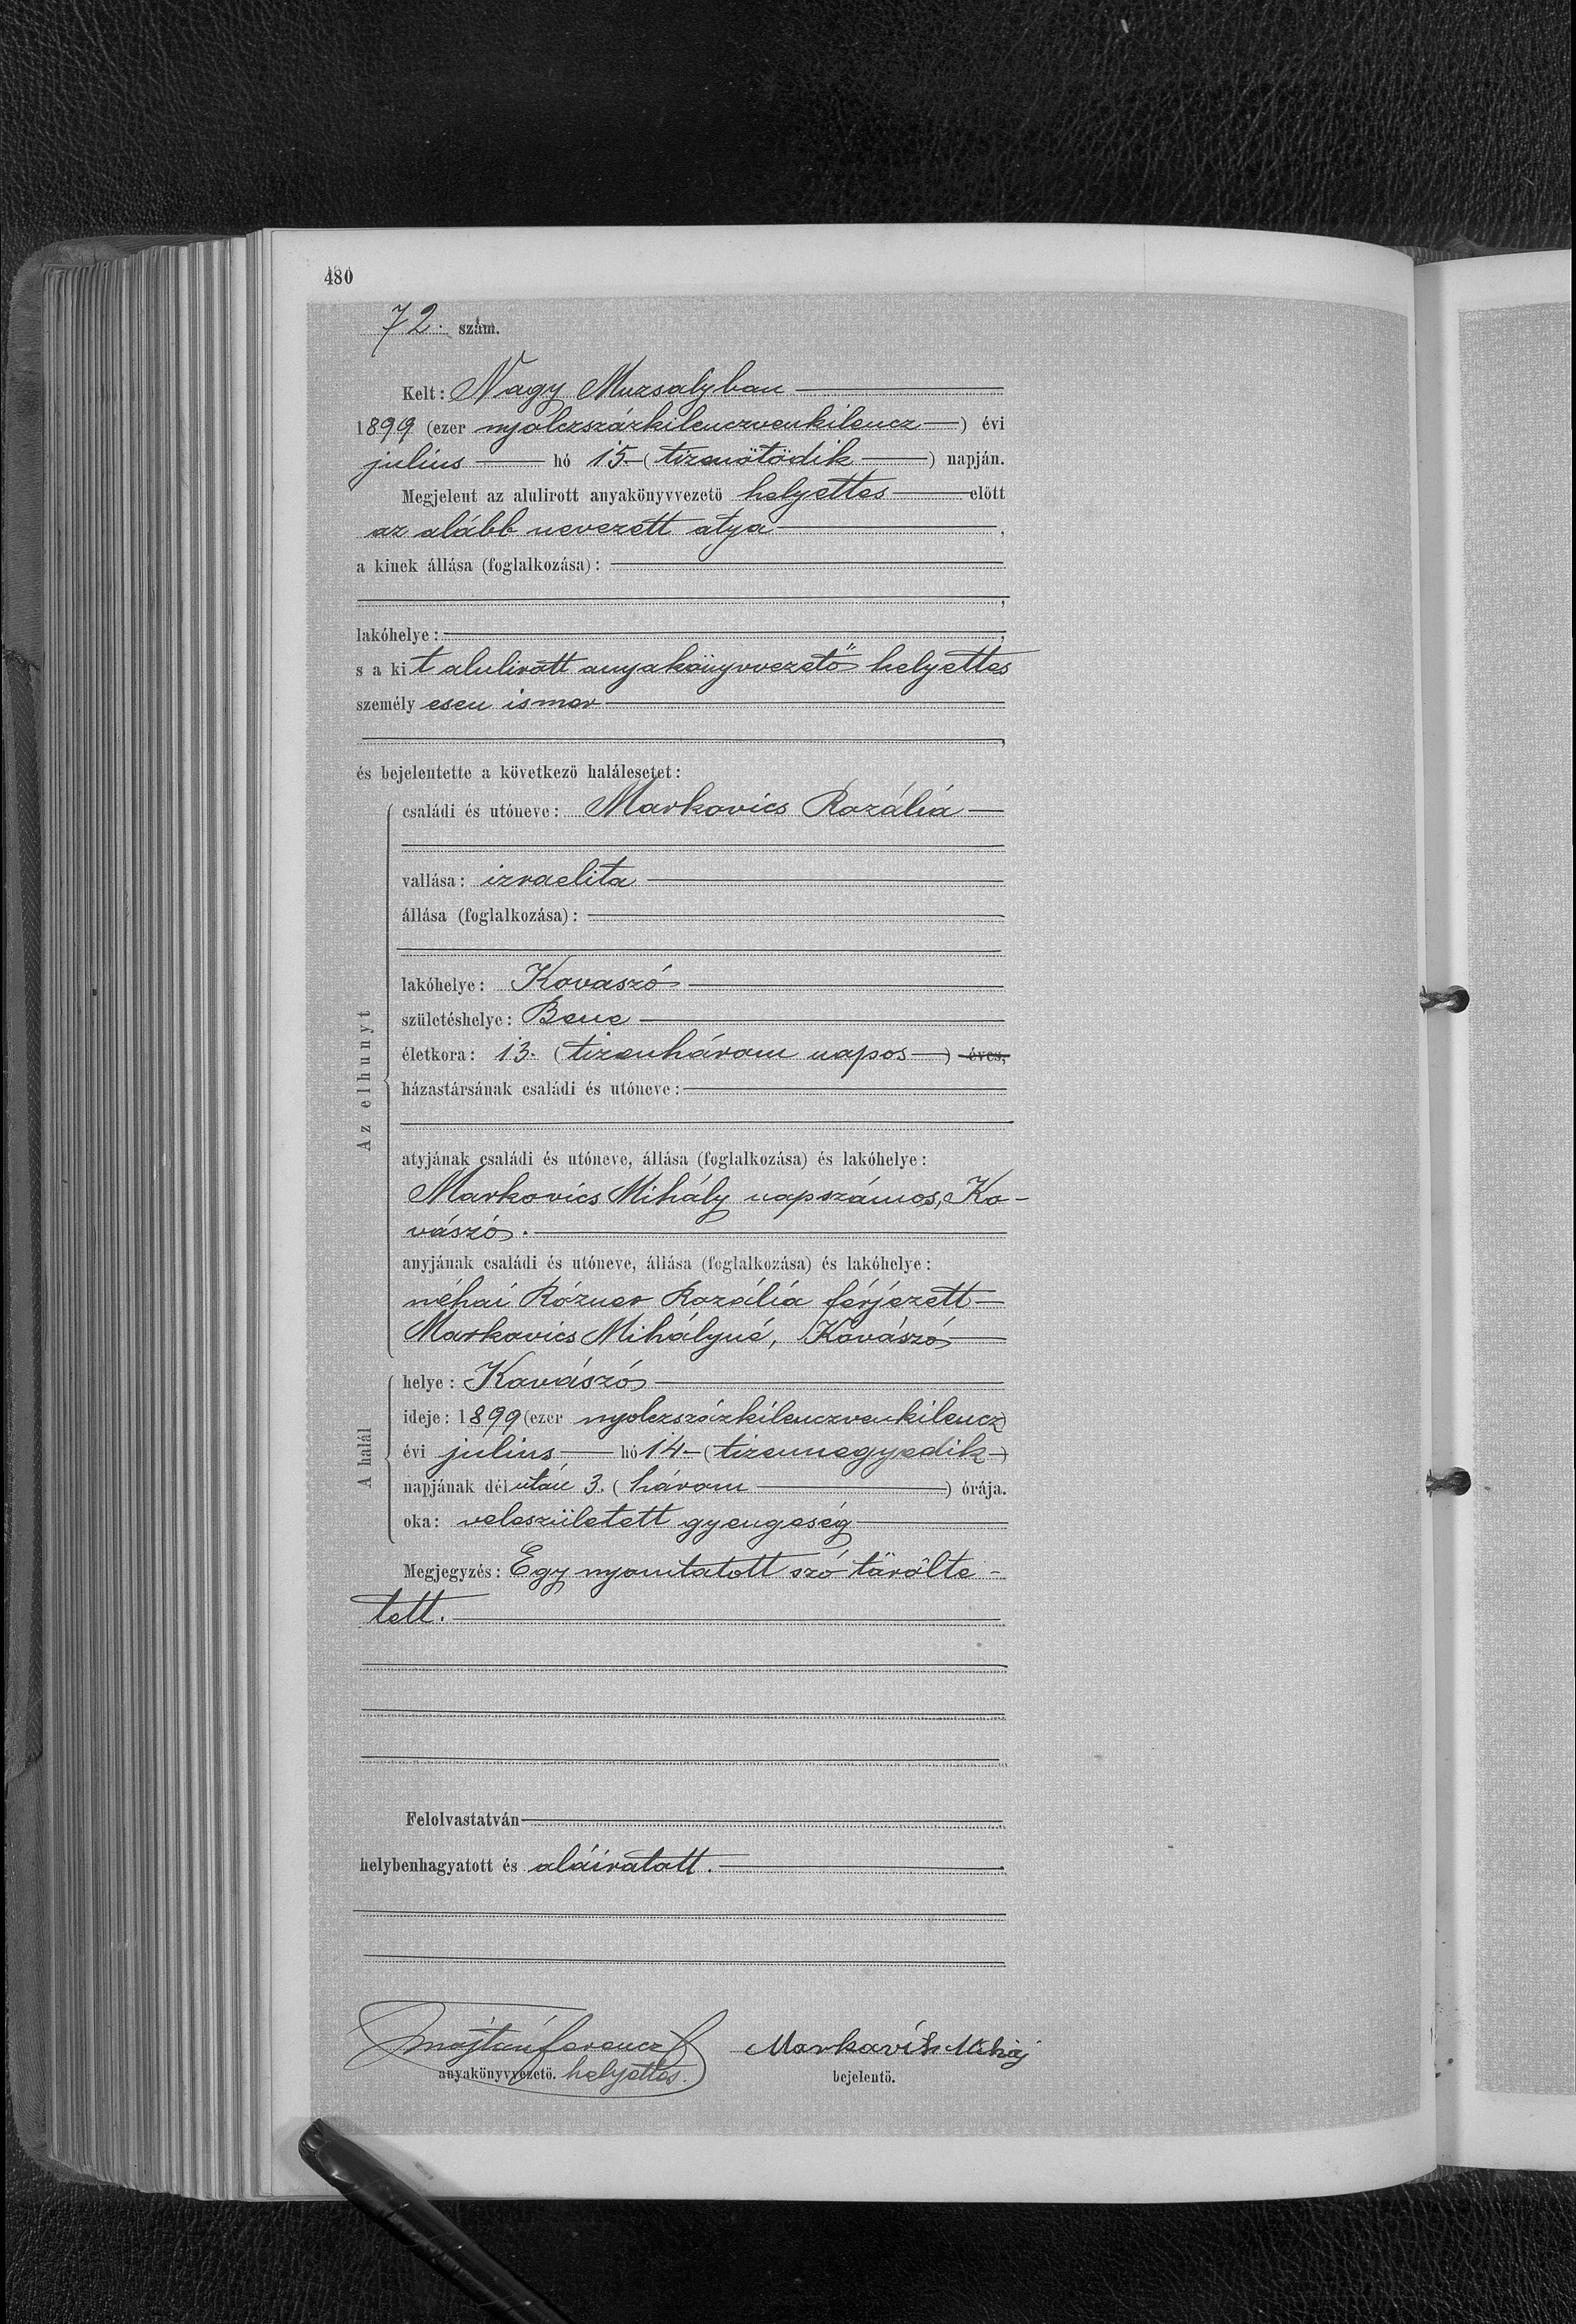 480
72. szám.
Kelt: Nagy Muzsalyban
1899 (ezer nyolczszázkilenczvenkilencz) évi
julius hó 15. (tizenötödik) napján.
Megjelent az alulirott anyakönyvvezető helyettes előtt
az alább nevezett atya,
a kinek állása (foglalkozása):
,
lakóhelye: ;
s a kit alulirott anyakönyvvezető helyettes
személyesen ismer
,
és bejelentette a következő halálesetet:
Az elhunyt
családi és utóneve: Markovics Rozália
vallása: izraelita
állása (foglalkozása):
lakóhelye: Kovaszó
születéshelye: Bene
életkora: 13. (tizenhárom napos) éves,
házastársának családi és utóneve:
atyjának családi és utóneve, állása (foglalkozása) és lakóhelye:
Markovics Mihály napszámos, Ko-
vászó.
anyjának családi és utóneve, állása (foglalkozása) és lakóhelye:
néhai Rózner Rozália férjezett
Markovics Mihályné, Kovászó
A halál
helye: Kovászó
ideje: 1899 (ezer nyolczszázkilenczvenkilencz)
évi julius hó 14. (tizennegyedik)
napjának délután 3. (három) órája.
oka: veleszületett gyengeség
Megjegyzés: Egy nyomtatott szó törölte-
tett.
Felolvastatván
helybenhagyatott és aláiratott.
Majtán Ferencz Markavich Mihaj
anyakönyvvezető. helyettes. bejelentő.